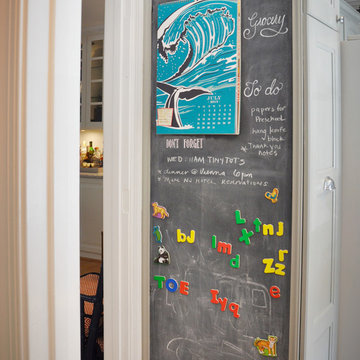 Grocery
To do
papers for
Preschool
hang knife
block
Thank you
notes
JULY
DON'T FORGET
WED HAM TINY TOTS
dinner @ Vienna 6pm
HOTEL RESERVATIONS
L f n J
b J l m d X
r
Z z
T O E
I y q
e